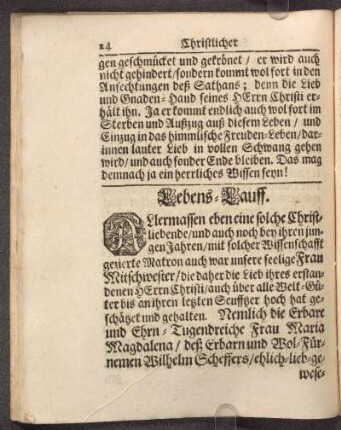 24 Christlicher
gen geschmücket und gekrönet / er wird auch
nicht gehindert/sondern kommt wol fort in den
Anfechtungen deß Sathans; denn die Lieb
und Gnaden-Hand seines HErrn Christi er-
hält ihn. Ja er kommt endlich auch wol fort im
Sterben und Außzug auß diesem Leben / und
Einzug in das himmlische Freuden-Leben/dar-
innen lauter Lieb in vollen Schwang gehen
wird/und auch sonder Ende bleiben. Das mag
demnach ja ein herrliches Wissen seyn!
Lebens-Lauff.
ALlermassen eben eine solche Christ-
liebende/und auch noch bey ihren jun-
gen Jahren/mit solcher Wissenschafft
gezierte Matron auch war unsere seelige Frau
Mitschwester/die daher die Lieb ihres erstan-
denen HErrn Christi/auch über alle Welt-Gü-
ter bis an ihren letzten Seufftzer hoch hat ge-
schätzet und gehalten. Nemlich die Erbare
und Ehrn-Tugendreiche Frau Maria
Magdalena / deß Erbarn und Wol-Für-
nemen Wilhelm Scheffers/ehlich-lieb-ge-
wese-